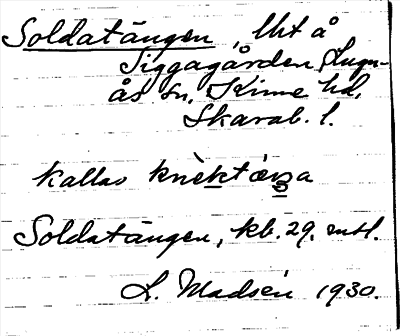 Soldatängen, Ut å
Siggagården, Lugn-
ås sn, Kinne hd,
Skarab. l.
kallas knèktæŋa
Soldatängen, kb. 29. enl.
L. Madsén 1930.